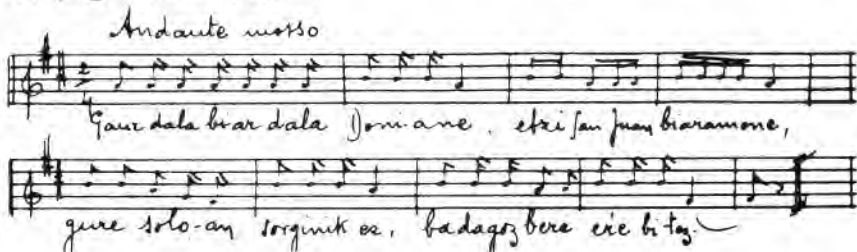 Andante mosso
2
4
Gaur dala biar dala Doniane, etzi San Juan biaramone,
gure solo-an sorginik ez, badagoz bere erre bitez.